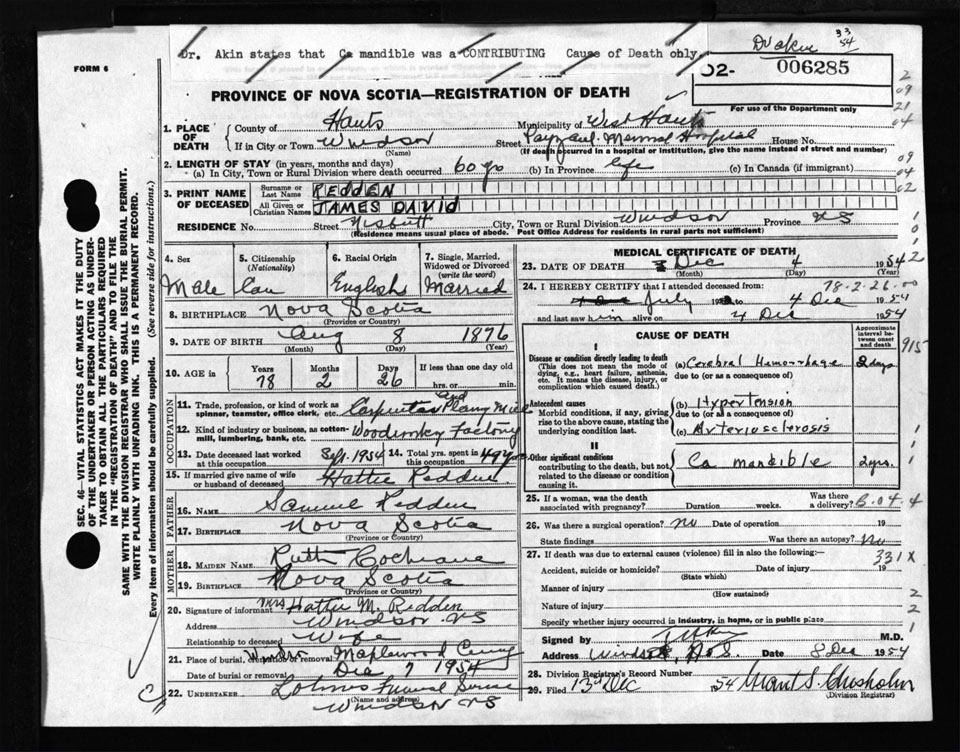 Dr. Akin states that Ca mandible was a CONTRIBUTING Cause of Death only
Dr Akin 33
54
FORM 6
02- 006285
For use of the Department only
PROVINCE OF NOVA SCOTIA—REGISTRATION OF DEATH
1. PLACE OF DEATH
County of Hants Municipality of West Hants
If in City or Town Windsor Street Memorial Hospital House No.
(Name) (If death occurred in a hospital or institution, give the name instead of street and number)
2. LENGTH OF STAY (in years, months and days)
(a) In City, Town or Rural Division where death occurred 60 yo (b) In Province life (c) In Canada (if immigrant)
3. PRINT NAME OF DECEASED
Surname or Last Name REDDEN
All Given or Christian Names JAMES DAVID
RESIDENCE No. Street Nesbitt City, Town or Rural Division Windsor Province NS
(Residence means usual place of abode. Post Office Address for residents in rural parts not sufficient)
4. Sex Male
5. Citizenship (Nationality) Can
6. Racial Origin English
7. Single, Married, Widowed or Divorced (write the word) Married
8. BIRTHPLACE Nova Scotia
(Province or Country)
9. DATE OF BIRTH Aug 8 1876
(Month) (Day) (Year)
10. AGE in Years 78 Months 2 Days 26 If less than one day hrs. or min.
OCCUPATION
11. Trade, profession, or kind of work as spinner, teamster, office clerk, etc. Carpenter and Planing Mill
12. Kind of industry or business, as cotton-mill, lumbering, bank, etc. Woodworky Factory
13. Date deceased last worked at this occupation Sept. 1954 14. Total yrs. spent in this occupation 49 yrs
15. If married give name of wife or husband of deceased Hattie Redden
FATHER
16. NAME Samuel Redden
17. BIRTHPLACE Nova Scotia
(Province or Country)
MOTHER
18. MAIDEN NAME Ruth Cochrane
19. BIRTHPLACE Nova Scotia
(Province or Country)
20. Signature of informant Mrs Hattie M. Redden
Address Windsor NS
Relationship to deceased Wife
21. Place of burial, cremation or removal Windsor Maplewood Cemy
Date of burial or removal Dec 7 1954
22. UNDERTAKER Funeral Service
(Name and address)
Windsor NS
MEDICAL CERTIFICATE OF DEATH
23. DATE OF DEATH Dec 4 1954
(Month) (Day) (Year)
78-2-26-00
24. I HEREBY CERTIFY that I attended deceased from:
July 19 to 4 Dec 1954
and last saw him alive on 4 Dec 1954
CAUSE OF DEATH
Approximate interval between onset and death
915
I
Disease or condition directly leading to death
(This does not mean the mode of dying, e.g., heart failure, asthenia, etc. It means the disease, injury, or complication which caused death.)
(a) Cerebral Hemorrhage 2 days
due to (or as a consequence of)
Antecedent causes
Morbid conditions, if any, giving rise to the above cause, stating the underlying condition last.
(b) Hypertension
due to (or as a consequence of)
(c) Arteriosclerosis
II
Other significant conditions
contributing to the death, but not related to the disease or condition causing it.
Ca mandible 2 yrs.
25. If a woman, was the death associated with pregnancy? Duration weeks. Was there a delivery? B-04.4
26. Was there a surgical operation? No Date of operation 19
State findings Was there an autopsy? No
27. If death was due to external causes (violence) fill in also the following:— 331X
Accident, suicide or homicide? Date of injury 19
(State which)
Manner of injury
(How sustained)
Nature of injury
Specify whether injury occurred in industry, in home, or in public place
Signed by M.D.
Address Windsor, N.S. Date 8 Dec 1954
28. Division Registrar's Record Number
29. Filed 13th Dec 1954 Grant S. Chisholm
(Division Registrar)
SEC. 46—VITAL STATISTICS ACT MAKES IT THE DUTY OF THE UNDERTAKER OR PERSON ACTING AS UNDERTAKER TO OBTAIN ALL THE PARTICULARS REQUIRED IN THE "REGISTRATION OF DEATH" AND TO FILE THE SAME WITH THE DIVISION REGISTRAR WHO SHALL ISSUE THE BURIAL PERMIT.
WRITE PLAINLY WITH UNFADING INK. THIS IS A PERMANENT RECORD.
Every item of information should be carefully supplied. (See reverse side for instructions.)